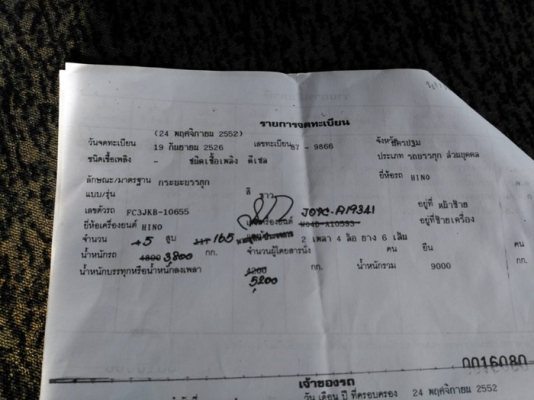 รายการจดทะเบียน
(24 พฤศจิกายน 2552)
วันจดทะเบียน 19 กันยายน 2526 เลขทะเบียน 87 - 9866 จังหวัด นครปฐม
ชนิดเชื้อเพลิง - ชนิดเชื้อเพลิง ดีเซล ประเภท รถบรรทุก ส่วนบุคคล
ลักษณะ/มาตรฐาน กระบะบรรทุก ยี่ห้อรถ HINO
แบบ/รุ่น สี ขาว
เลขตัวรถ FC3JKB-10655 JO7C-A19341 อยู่ที่ หน้าซ้าย
ยี่ห้อเครื่องยนต์ HINO เลขเครื่องยนต์ W04D-A10593 อยู่ที่ซ้ายเครื่อง
จำนวน 5 สูบ 165 2 เพลา 4 ล้อ ยาง 6 เส้น
น้ำหนักรถ 4800 3,800 กก. จำนวนผู้โดยสารนั่ง คน ยืน คน
น้ำหนักบรรทุกหรือน้ำหนักลงเพลา 4200 กก. น้ำหนักรวม 9000 กก.
5,200
0016080
เจ้าของรถ
วัน เดือน ปี ที่ครอบครอง 24 พฤศจิกายน 2552